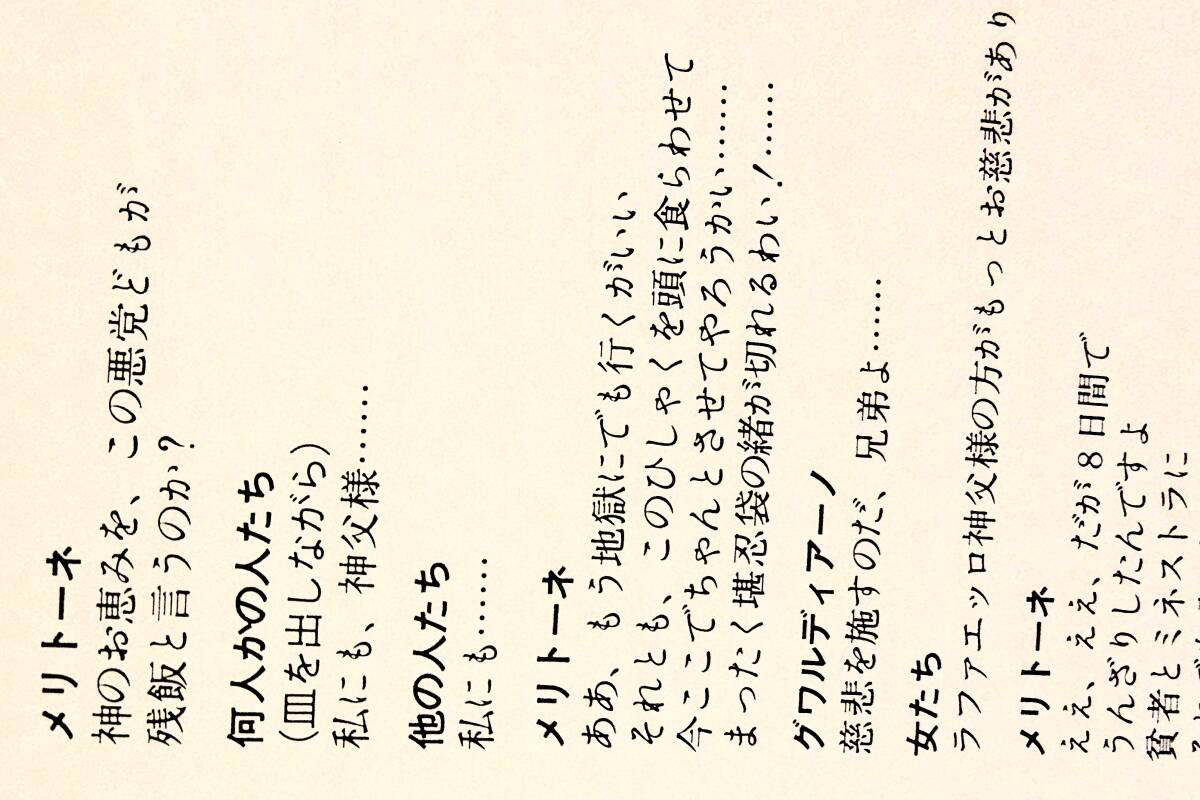 メリトーネ
神のお恵みを、この悪党どもが
残飯と言うのか?
何人かの人たち
(皿を出しながら)
私にも、神父様……
他の人たち
私にも……
メリトーネ
ああ、もう地獄にでも行くがいい
それとも、このひしゃくを頭に食らわせて
今ここでちゃんとさせてやろうかい……
まったく堪忍袋の緒が切れるわい!……
グワルディアーノ
慈悲を施すのだ、兄弟よ……
女たち
ラファエッロ神父様の方がもっとお慈悲があり
メリトーネ
ええ、ええ、だが8日間で
うんざりしたんですよ
貧者とミネストラに